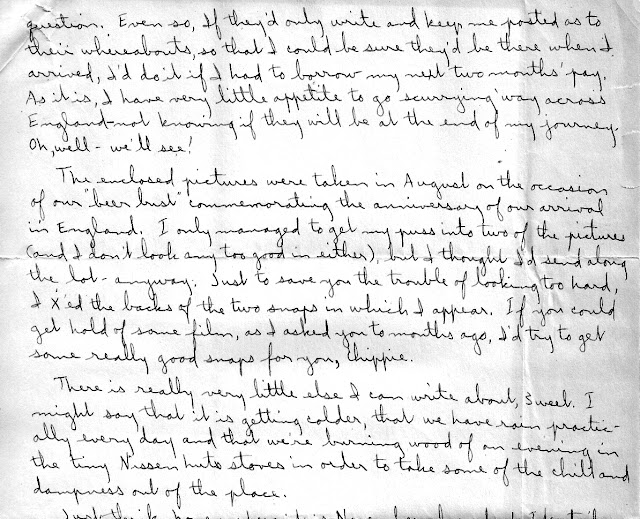 question. Even so, if they'd only write and keep me posted as to
their whereabouts, so that I could be sure they'd be there when I
arrived, I'd do it if I had to borrow my next two months' pay.
As it is, I have very little appetite to go scurrying way across
England - not knowing if they will be at the end of my journey.
Oh, well - we'll see!
The enclosed pictures were taken in August on the occasion
of our "beer bust" commemorating the anniversary of our arrival
in England. I only managed to get my puss into two of the pictures
(and I don't look any too good in either), but I thought I'd send along
the lot - anyway. Just to save you the trouble of looking too hard,
I X'ed the backs of the two snaps in which I appear. If you could
get hold of some film, as I asked you to months ago, I'd try to get
some really good snaps for you, Chippie.
There is really very little else I can write about, Sweet. I
might say that it is getting colder, that we have rain practic-
ally every day and that we're burning wood of an evening in
the tiny Nissen huts stoves in order to take some of the chill and
dampness out of the place.